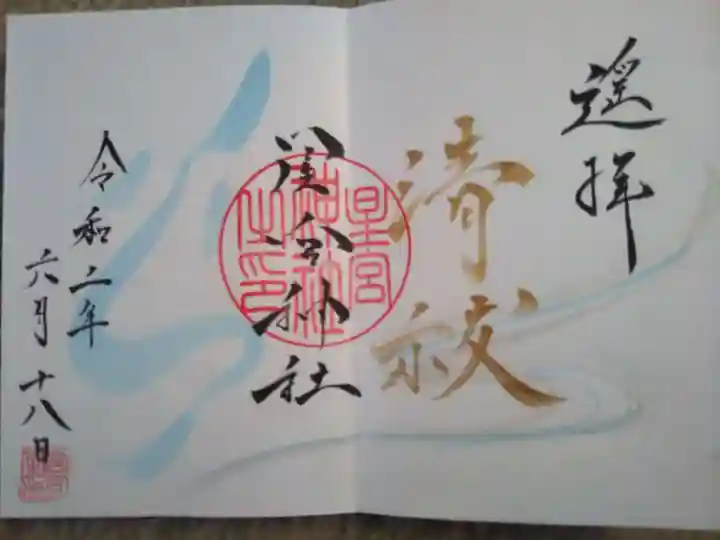 遥拝
清祓
関谷神社
星宮
神社
之印
令和二年
六月十八日